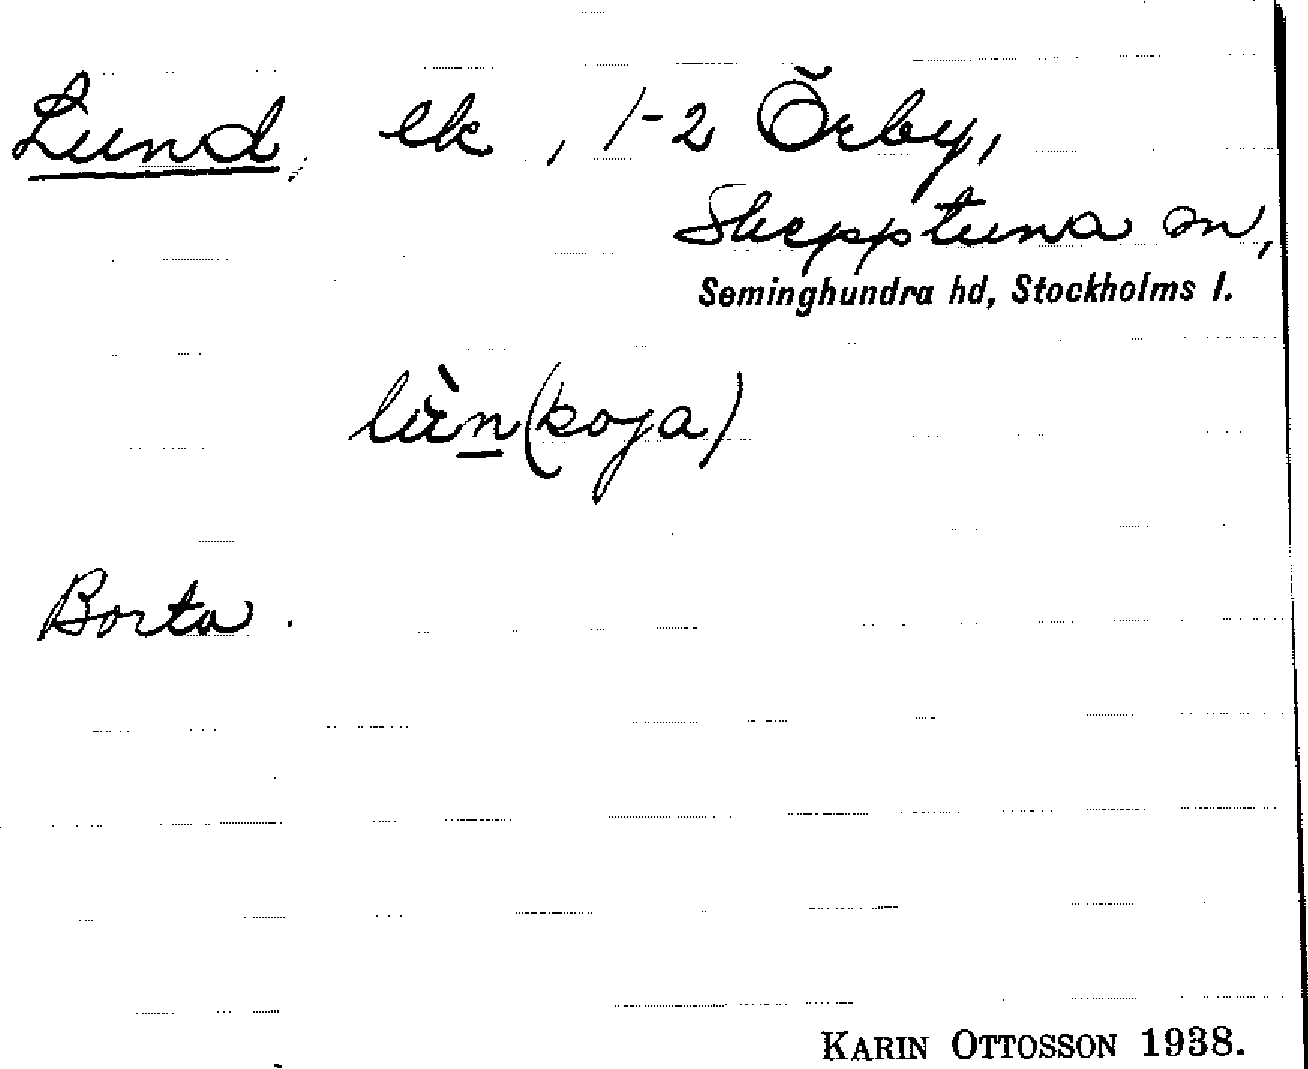 Lund, ek, 1-2 Örby,
Skepptuna sn,
Seminghundra hd, Stockholms l.
(koja)
Borta.
KARIN OTTOSSON 1938.